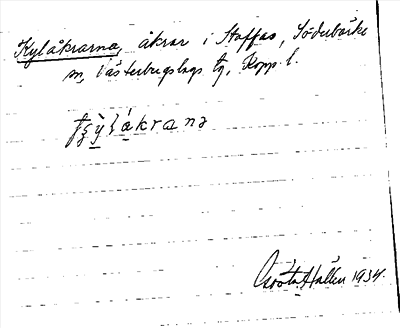 Kylåkrarna, åkrar i Staffas, Söderbärke
sn, Västerbergslags tg, Kopp. l.
Hallén 1934.